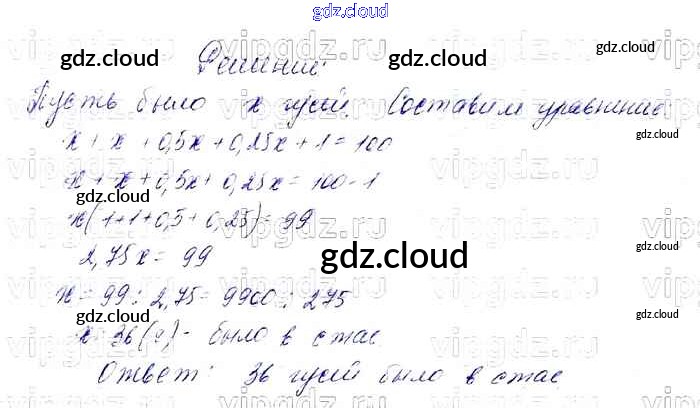 gdz.cloud
Решение:
Пусть было x гусей. Составим уравнение:
x + x + 0,5x + 0,25x + 1 = 100
x + x + 0,5x + 0,25x = 100 - 1
x(1+1+0,5+0,25) = 99
2,75x = 99
x = 99 : 2,75 = 9900 : 275
x = 36 (г) - было в стае
Ответ: 36 гусей было в стае
gdz.cloud
gdz.cloud
gdz.cloud
gdz.cloud
gdz.cloud
gdz.cloud
gdz.cloud
gdz.cloud
gdz.cloud
gdz.cloud
gdz.cloud
vipgdz.ru